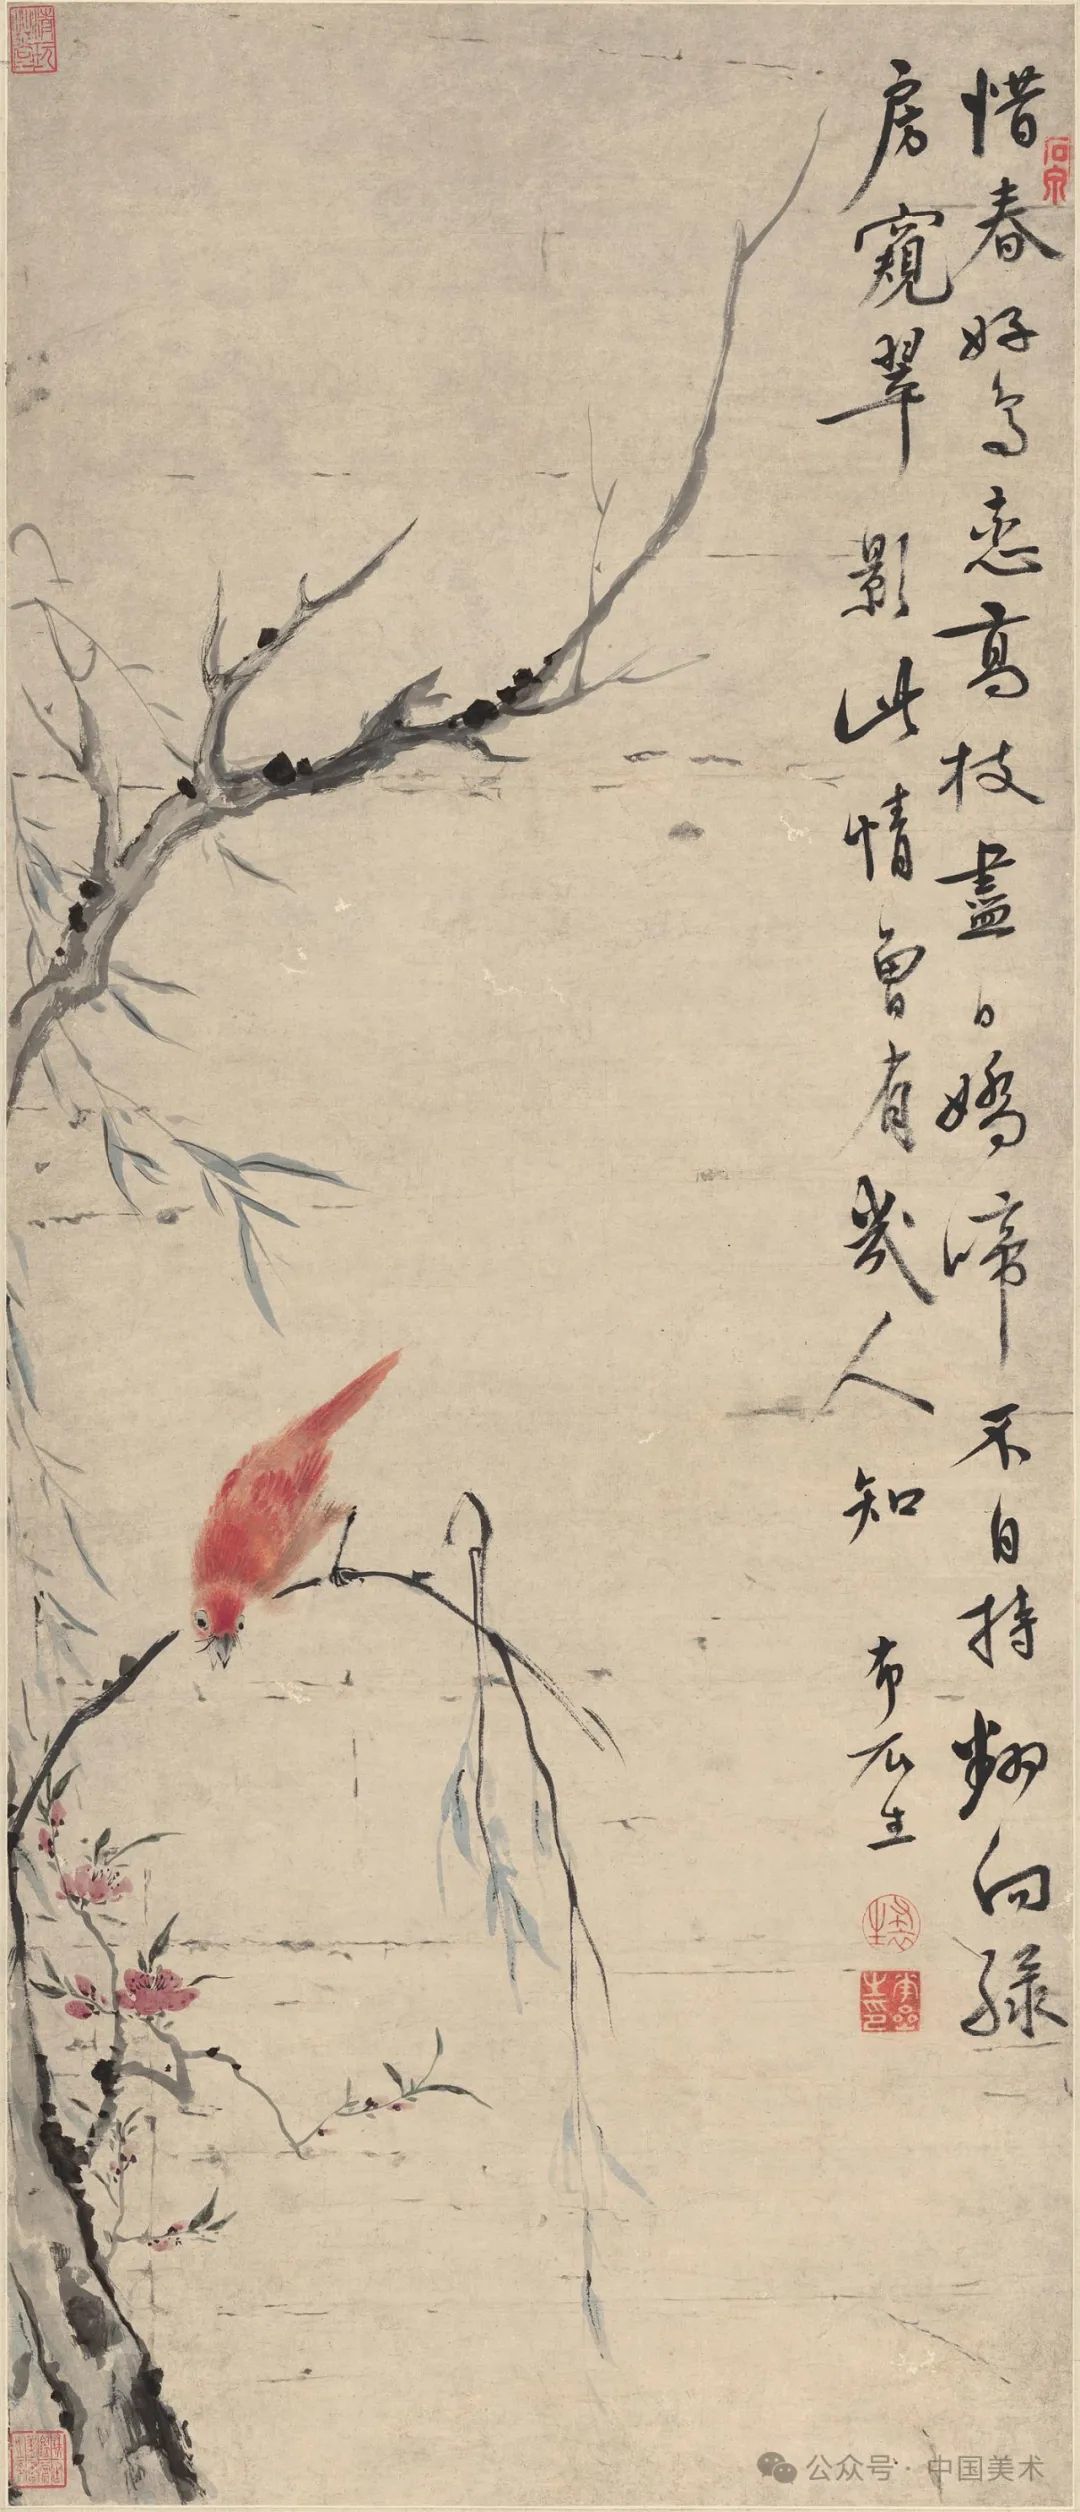 惜春好鸟恋高枝盡日嬌啼不自持翻向緑
房窺翠影此情曾有幾人知
布衣生
石泉
公众号·中国美术